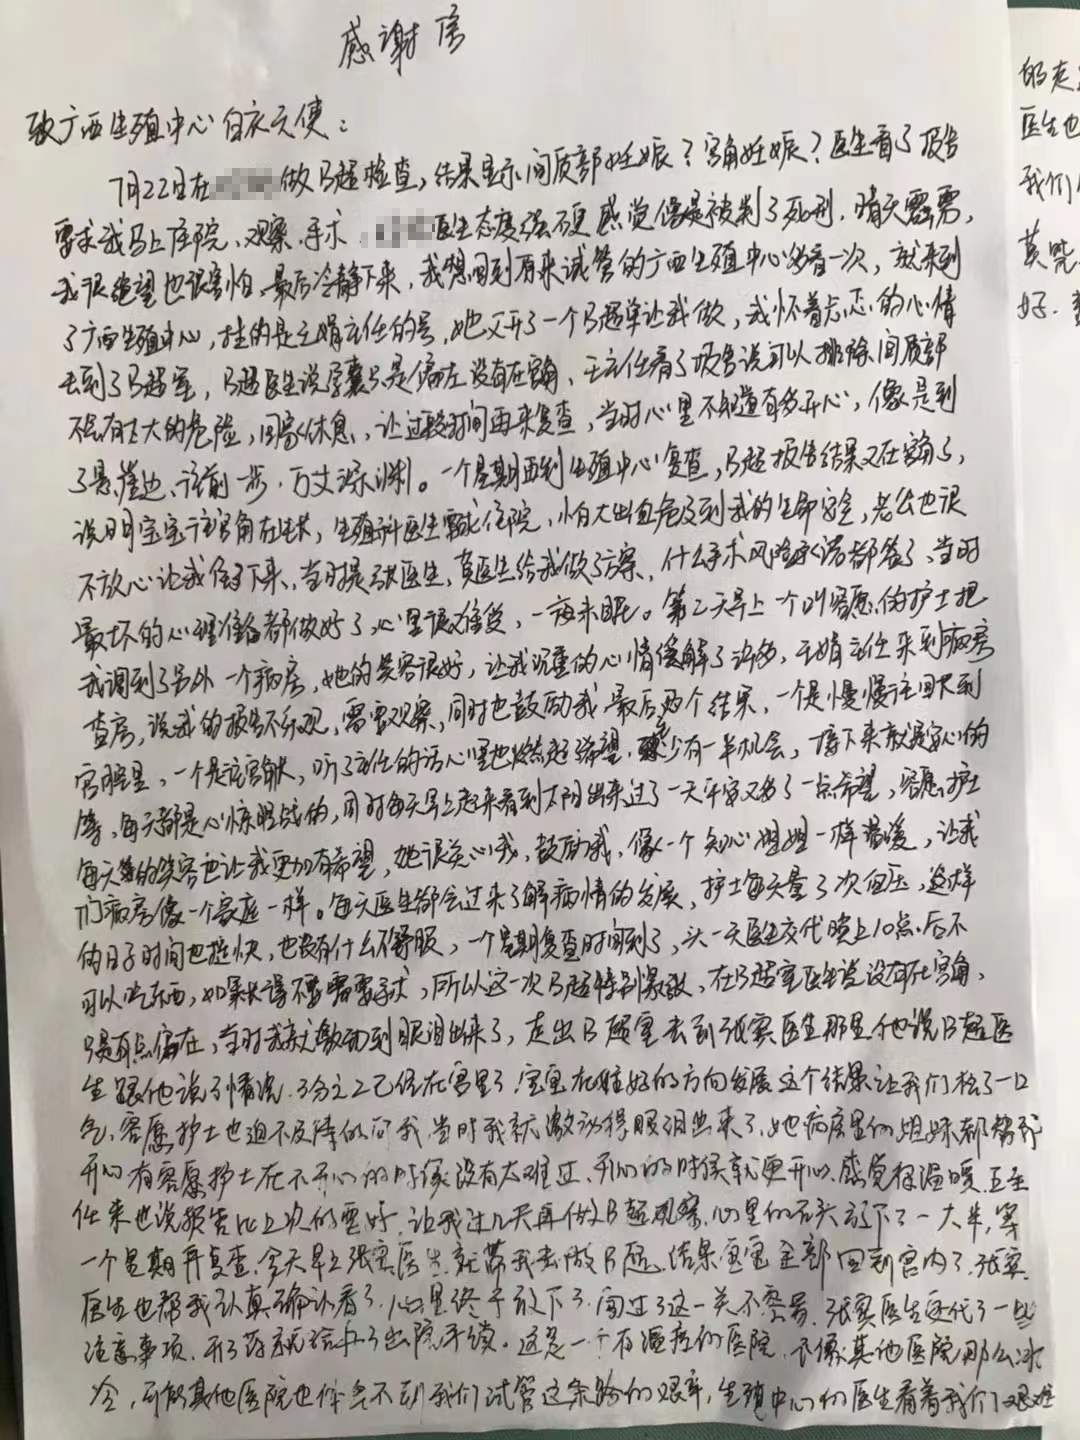 感谢信
致广西生殖中心白衣天使：
7月22日在做B超检查，结果显示间质部妊娠？宫角妊娠？医生看了报告
要求我马上住院、观察、手术 医生态度强硬感觉像是被判了死刑，晴天霹雳，
我很绝望也很害怕、最后冷静下来，我想回到原来试管的广西生殖中心必看一次，就来到
了广西生殖中心，挂的是王娟主任的号，她又开了一个B超单让我做，我怀着忐忑的心情
去到了B超室，B超医生说孕囊只是偏左没有在宫角、王主任看了报告说可以排除间质部
不会有太大的危险，回家休息，让过段时间再来复查，当时心里不知道有多开心，像是到
了悬崖边、往前一步，万丈深渊。一个星期再到生殖中心复查，B超报告结果又在宫角了，
说明宝宝往宫角在生长，生殖科医生要求住院，怕大出血危及到我的生命安全，老公也很
不放心让我住了下来、当时是张医生，黄医生给我做了方案，什么手术风险承诺都签了、当时
最坏的心理准备都做好了，心里很难受，一夜未眠。第二天早上一个叫容愿的护士把
我调到了另外一个病房，她的笑容很好，让我沉重的心情缓解了许多，王娟主任来到病房
查房，说我的报告不乐观，需要观察，同时也鼓励我，最后两个结果，一个是慢慢往回长到
宫腔里，一个是往宫外，听了主任的话心里也燃起希望，至少有一半机会，接下来就是安心的
等，每天都是心惊胆战的，同时每天早上起来看到太阳出来过了一天平安又多了一点希望，容愿护士
每天的笑容也让我更加有希望，她很关心我，鼓励我，像一个知心姐姐一样温暖，让我
们病房像一个家庭一样。每天医生都会过来了解病情的发展，护士每天量了次血压，这样
的日子时间也挺快，也没有什么不舒服，一个星期复查时间到了，头一天医生交代晚上10点后不
可以吃东西，如果长得不要需要手术，所以这一次B超特别紧张，在B超室医生说没有在宫角，
只是有点偏左，当时我就激动到眼泪出来了，走出B超室去到张寒医生那里他说B超医
生跟他说了情况，3分之2已经在宫里了，宝宝在往好的方向发展这个结果让我们松了一口
气，容愿护士也迫不及待的问我，当时我就激动得眼泪出来了，她病房里的姐妹都替我
开心有容愿护士在不开心的时候没有太难过、开心的时候就更开心、感觉很温暖，王主
任来也说报告比上次的要好，让我过几天再做B超观察，心里的石头放下了一大半，等
一个星期再复查，今天早上张寒医生就带我去做B超，结果宝宝全部回到宫内了，张寒
医生也帮我认真确认看了，心里终于放下了，闯过了这一关不容易，张寒医生交代了一些
注意事项，开了药就给办了出院手续。这是一个有温度的医院，不像其他医院那么冰
冷，可能其他医院也体会不到我们试管这条路的艰辛，生殖中心的医生看着我们艰难
的走
医生也
我们
莫
好.